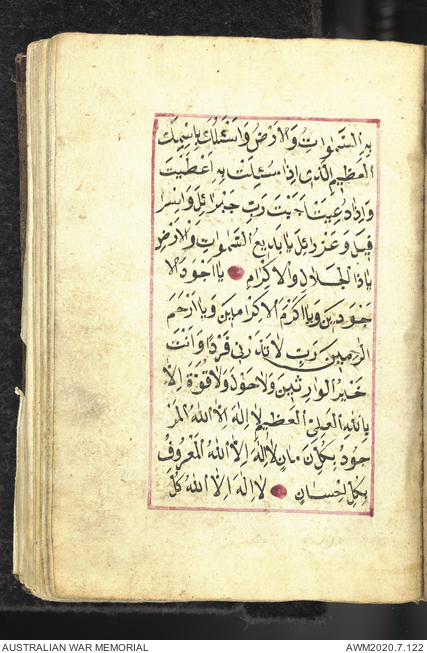 به السَّمواتُ وَالارْضُ وَاسْئَلُكَ بِاسْمِكَ
العَظيمِ الَّذى اِذا سُئِلْتَ بِه اَعْطَيْتَ
وَاِذا دُعِيتَ اَجَبْتَ رَبِّ جَبْرائِلَ وَاسْرا
فيلَ وَعَزْرائِلَ يا بَديعَ السَّمواتِ وَالارْضِ
ياذَا الجَلالِ وَالاِكْرامِ يا اَجْوَدَ الا
جْوَدينَ وَيا اَكْرَمَ الاكْرامينَ وَيا اَرْحَمَ
الرحِمينَ رَبِّ لا تَذَرْنى فَرْدًا وَاَنْتَ
خَيْرُ الوارِثينَ وَلاحَوْلَ وَلاقُوَّةَ اِلاَّ
بِاللهِ العَلِىِّ العَظيمِ لا اِلهَ الاَّ اللهُ المَوْ
جُودُ بِكُلِّ زَمانٍ لا اِلهَ اِلاَّ اللهُ المَعْرُوفُ
بِكُلِّ اِحْسانٍ لا اِلهَ اِلاَّ اللهُ كُلَّ
AUSTRALIAN WAR MEMORIAL
AWM2020.7.122